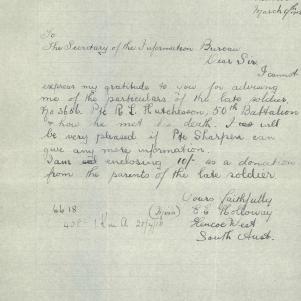 March 9th
To
The Secretary of the Information Bureau
Dear Sir
I cannot
express my gratitude to you for advising
me of the particulars of the late soldier
No 3686 Pte R. L. Hutcheson, 50th Battalion
& how he met is death. I will
be very pleased if Pte Sharpen can
give any more information.
I am enclosing 10/- as a donation
from the parents of the late soldier
Yours faithfully
(Signed) E. E. Holloway
Glencoe West
South Aust.
6618